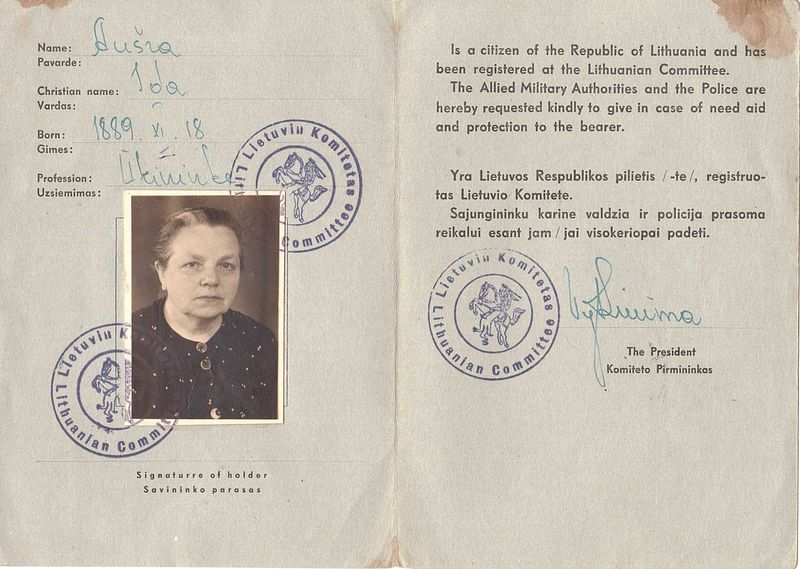 Name: Aušra
Pavarde:
Christian name: Ida
Vardas:
Born: 1889. XI. 18
Gimes:
Profession: Ūkininkė
Uzsiemimas:
Lietuvin Komitetas
Lithuanian Committee
Lietuvin Komitetas
Lithuanian Committee
Signaturre of holder
Savininko parasas
Is a citizen of the Republic of Lithuania and has
been registered at the Lithuanian Committee.
The Allied Military Authorities and the Police are
hereby requested kindly to give in case of need aid
and protection to the bearer.
Yra Lietuvos Respublikos pilietis /-te/, registruo-
tas Lietuvio Komitete.
Sajungininku karine valdzia ir policija prasoma
reikalui esant jam / jai visokeriopai padeti.
Lietuvin Komitetas
Lithuanian Committee
The President
Komiteto Pirmininkas